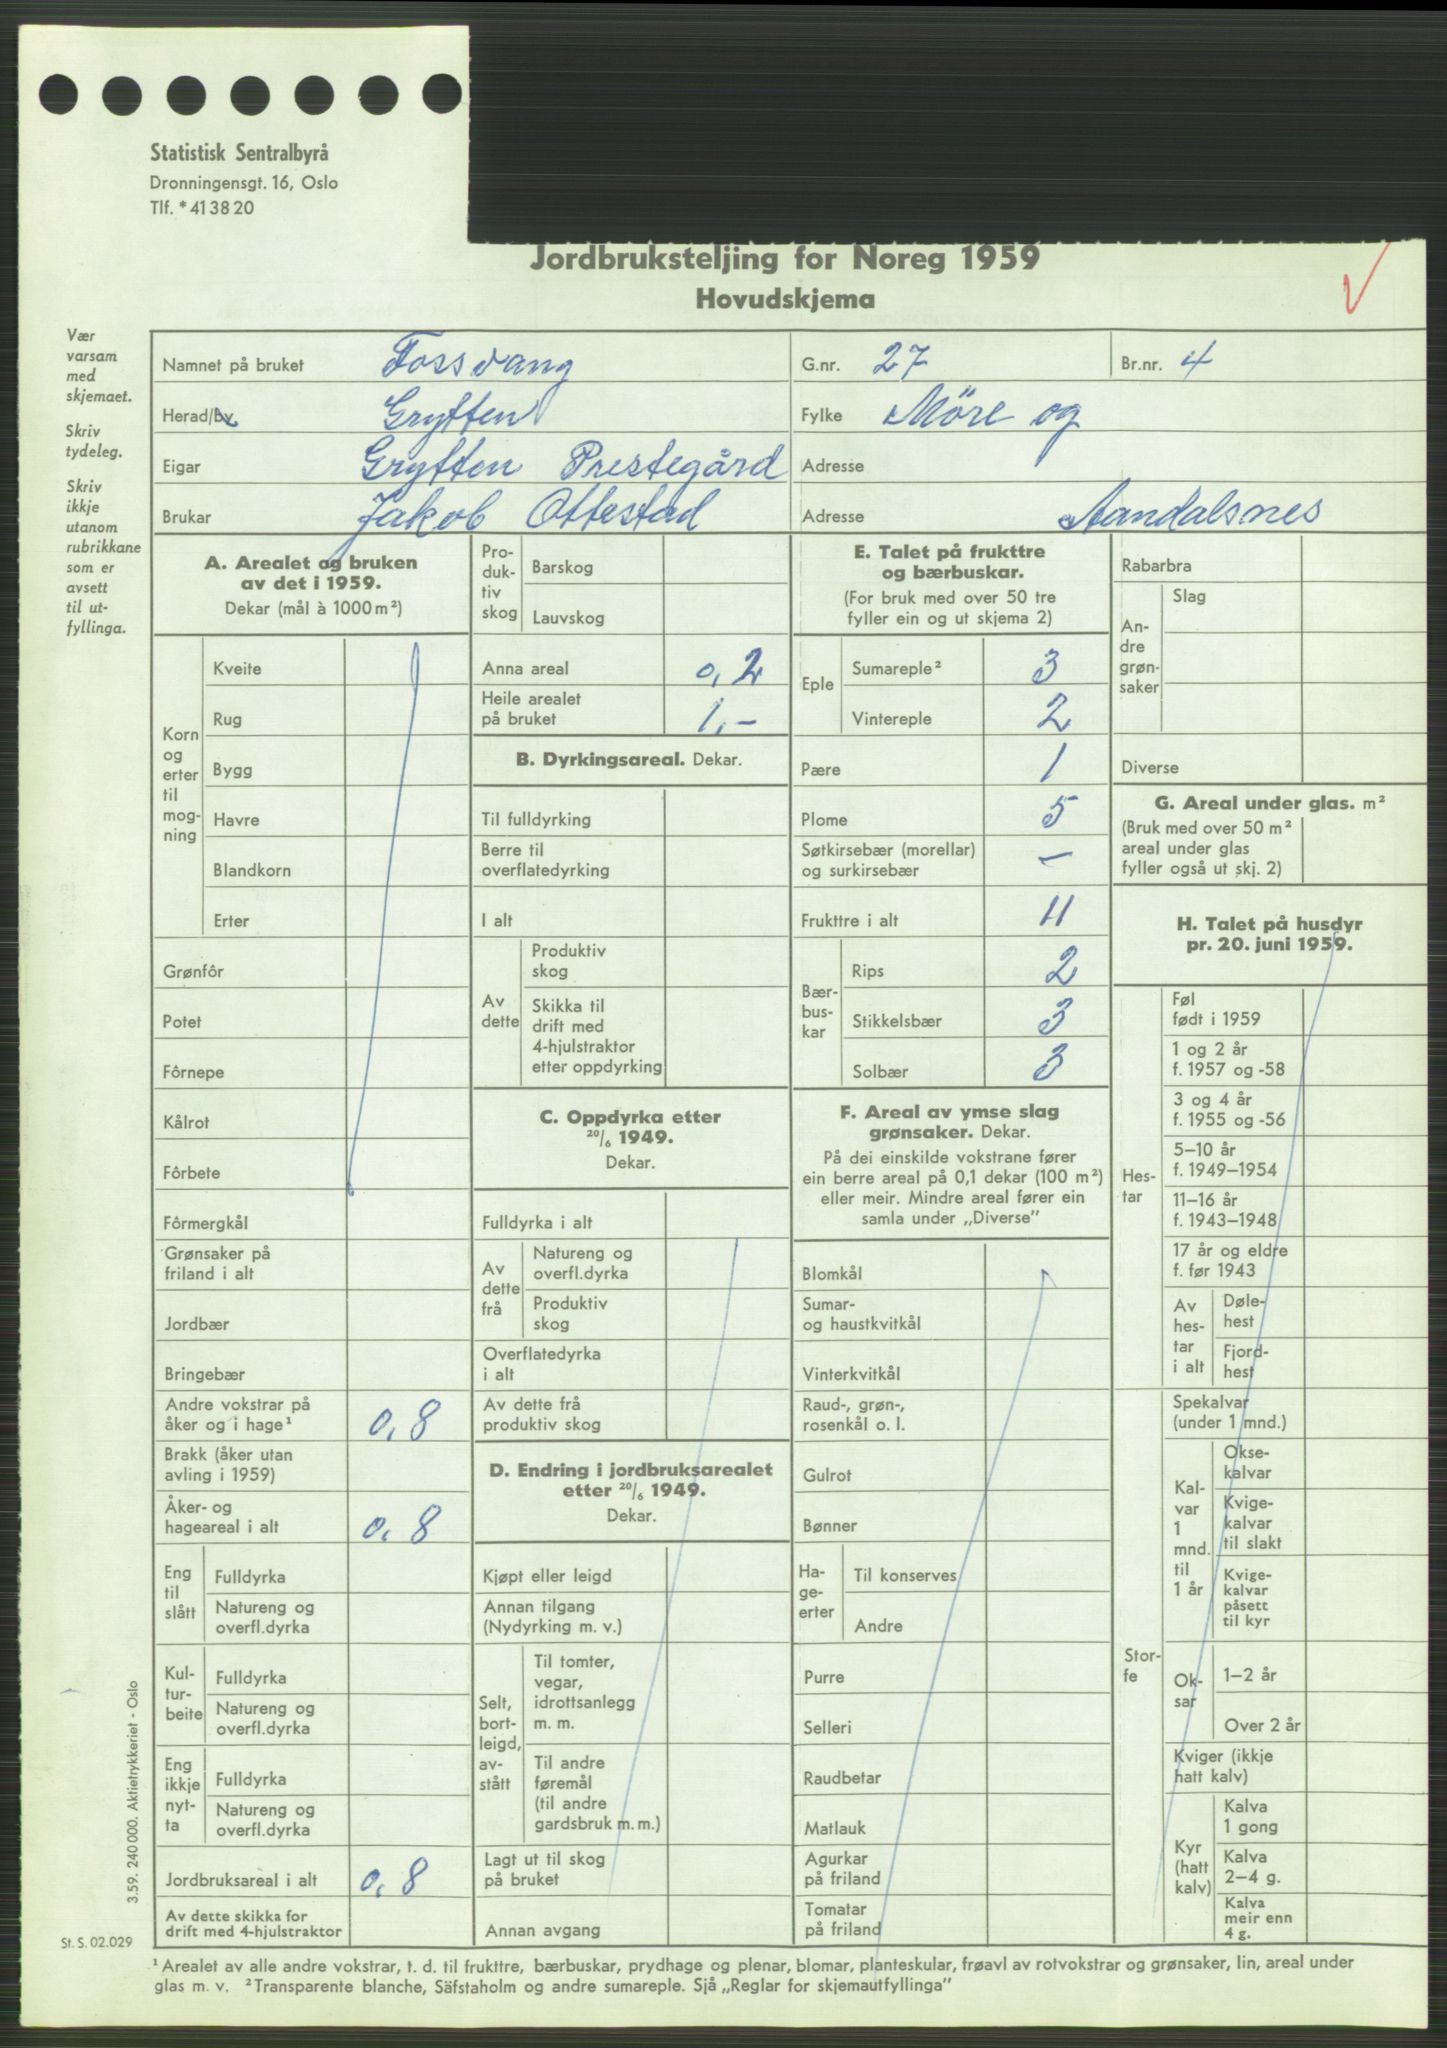 Statistisk Sentralbyrå
Dronningensgt. 16, Oslo
Tlf. *413820
Jordbruksteljing for Noreg 1959
Hovudskjema
Vær
varsam
med
skjemaet.
Skriv
tydeleg.
Skriv
ikkje
utanom
rubrikkane
som er
avsett
til ut-
fyllinga.
Namnet på bruket Fossvang G.nr. 27 Br.nr. 4
Herad/by Grytten Fylke Möre og
Eigar Grytten Prestegård Adresse
Brukar Jakob Ottestad Adresse Aandalsnes
A. Arealet og bruken
av det i 1959.
Dekar (mål à 1000 m²)
Korn
og
erter
til
mog-
ning
Kveite
Rug
Bygg
Havre
Blandkorn
Erter
Grønfôr
Potet
Fôrnepe
Kålrot
Fôrbete
Fôrmergkål
Grønsaker på
friland i alt
Jordbær
Bringebær
Andre vokstrar på
åker og i hage¹ 0,8
Brakk (åker utan
avling i 1959)
Åker- og
hageareal i alt 0,8
Eng
til
slått
Fulldyrka
Natureng og
overfl.dyrka
Kul-
tur-
beite
Fulldyrka
Natureng og
overfl.dyrka
Eng
ikkje
nyt-
ta
Fulldyrka
Natureng og
overfl.dyrka
Jordbruksareal i alt 0,8
Av dette skikka for
drift med 4-hjulstraktor
Pro-
duk-
tiv
skog
Barskog
Lauvskog
Anna areal 0,2
Heile arealet
på bruket 1,-
B. Dyrkingsareal. Dekar.
Til fulldyrking
Berre til
overflatedyrking
I alt
Av
dette
Produktiv
skog
Skikka til
drift med
4-hjulstraktor
etter oppdyrking
C. Oppdyrka etter
20/6 1949.
Dekar.
Fulldyrka i alt
Av
dette
frå
Natureng og
overfl.dyrka
Produktiv
skog
Overflatedyrka
i alt
Av dette frå
produktiv skog
D. Endring i jordbruksarealet
etter 20/6 1949.
Dekar.
Kjøpt eller leigd
Annan tilgang
(Nydyrking m. v.)
Selt,
bort-
leigd,
av-
stått
Til tomter,
vegar,
idrottsanlegg
m. m.
Til andre
føremål
(til andre
gardsbruk m. m.)
Lagt ut til skog
på bruket
Annan avgang
E. Talet på frukttre
og bærbuskar.
(For bruk med over 50 tre
fyller ein og ut skjema 2)
Eple
Sumareple² 3
Vintereple 2
Pære 1
Plome 5
Søtkirsebær (morellar)
og surkirsebær –
Frukttre i alt 11
Bær-
bus-
kar
Rips 2
Stikkelsbær 3
Solbær 3
F. Areal av ymse slag
grønsaker. Dekar.
På dei einskilde vokstrane fører
ein berre areal på 0,1 dekar (100 m²)
eller meir. Mindre areal fører ein
samla under „Diverse”
Blomkål
Sumar-
og haustkvitkål
Vinterkvitkål
Raud-, grøn-,
rosenkål o. l.
Gulrot
Bønner
Ha-
ge-
erter
Til konserves
Andre
Purre
Selleri
Raudbetar
Matlauk
Agurkar
på friland
Tomatar
på friland
Rabarbra
An-
dre
grøn-
saker
Slag
Diverse
G. Areal under glas. m²
(Bruk med over 50 m²
areal under glas
fyller også ut skj. 2)
H. Talet på husdyr
pr. 20. juni 1959.
Hes-
tar
Føl
født i 1959
1 og 2 år
f. 1957 og -58
3 og 4 år
f. 1955 og -56
5–10 år
f. 1949–1954
11–16 år
f. 1943–1948
17 år og eldre
f. før 1943
Av
hes-
tar
i alt
Døle-
hest
Fjord-
hest
Stor-
fe
Spekalvar
(under 1 mnd.)
Kal-
var
1
mnd.
til
1 år
Okse-
kalvar
Kvige-
kalvar
til slakt
Kvige-
kalvar
påsett
til kyr
Ok-
sar
1–2 år
Over 2 år
Kviger (ikkje
hatt kalv)
Kyr
(hatt
kalv)
Kalva
1 gong
Kalva
2–4 g.
Kalva
meir enn
4 g.
3.59. 240 000. Aktietrykkeriet - Oslo
St. S. 02.029
¹ Arealet av alle andre vokstrar, t. d. til frukttre, bærbuskar, prydhage og plenar, blomar, planteskular, frøavl av rotvokstrar og grønsaker, lin, areal under
glas m. v. ² Transparente blanche, Säfstaholm og andre sumareple. Sjå „Reglar for skjemautfyllinga”